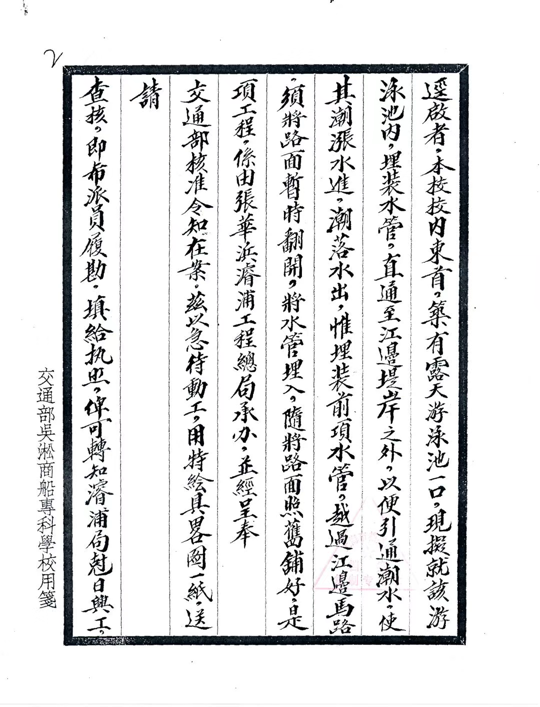 2
逕啟者。本校校内東首。築有露天游泳池一口。現擬就該游
泳池内。埋装水管。直通至江邉堤岸之外。以便引通潮水。使
其潮漲水進。潮落水出。惟埋装前項水管。越過江邉馬路
須將路面暫時翻開。將水管埋入。隨將路面照舊舖好。是
項工程。係由張華浜濬浦工程總局承办。並經呈奉
交通部核准令知在案。兹以急待動工。用特給具畧圖一紙。送
請
查核。即布派員履勘。填給执照。俾可轉知濬浦局尅日興工。
交通部吳淞商船專科學校用箋